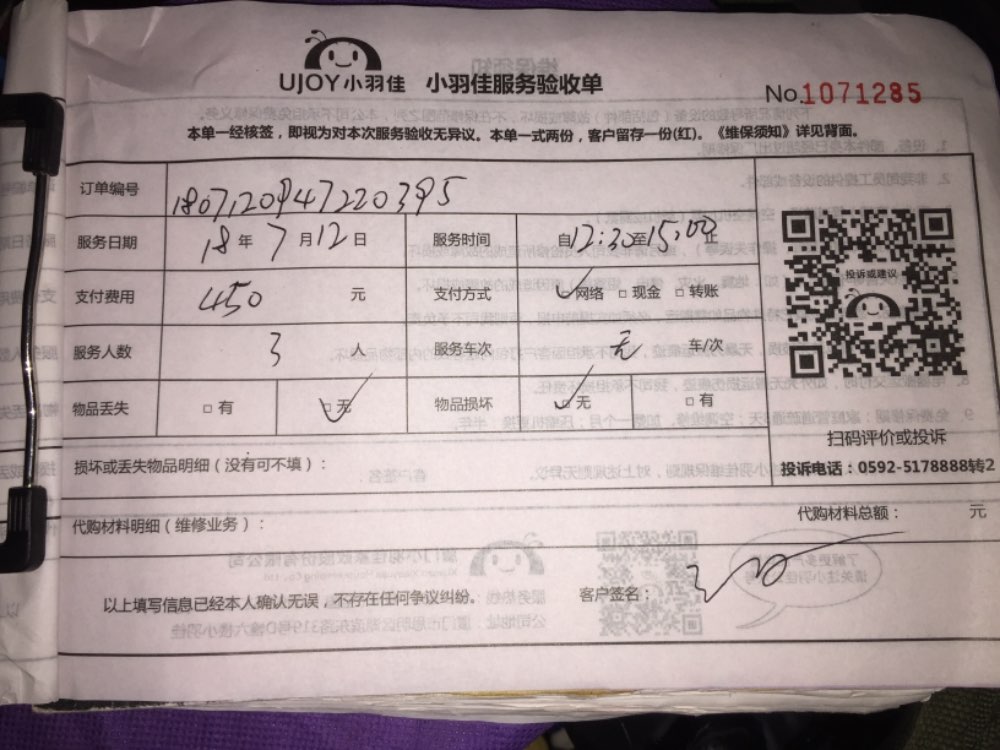 UJOY小羽佳 小羽佳服务验收单
No.1071285
本单一经核签，即视为对本次服务验收无异议。本单一式两份，客户留存一份(红)。《维保须知》详见背面。
订单编号 1807120947220395
服务日期 18年7月12日 服务时间 自12:30至15:00止
支付费用 450 元 支付方式 ✓□网络 □现金 □转账
投诉或建议
服务人数 3 人 服务车次 无 车/次
物品丢失 □有 ✓□无 物品损坏 ✓□无 □有
扫码评价或投诉
损坏或丢失物品明细（没有可不填）：
投诉电话：0592-5178888转2
代购材料明细（维修业务）：
代购材料总额： 元
以上填写信息已经本人确认无误，不存在任何争议纠纷。 客户签名：